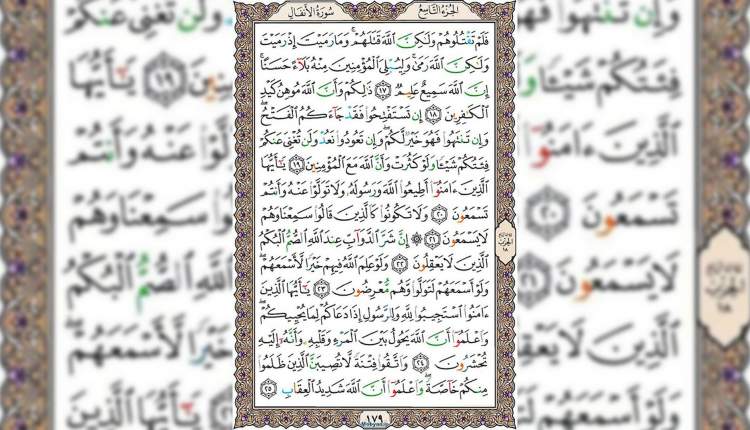 الجزء التاسع
سورة الأنفال
فَلَمْ تَقْتُلُوهُمْ وَلَـٰكِنَّ ٱللَّهَ قَتَلَهُمْ ۚ وَمَا رَمَيْتَ إِذْ رَمَيْتَ
وَلَـٰكِنَّ ٱللَّهَ رَمَىٰ ۚ وَلِيُبْلِىَ ٱلْمُؤْمِنِينَ مِنْهُ بَلَآءً حَسَنًا ۚ
إِنَّ ٱللَّهَ سَمِيعٌ عَلِيمٌ ١٧ ذَٰلِكُمْ وَأَنَّ ٱللَّهَ مُوهِنُ كَيْدِ
ٱلْكَـٰفِرِينَ ١٨ إِن تَسْتَفْتِحُوا۟ فَقَدْ جَآءَكُمُ ٱلْفَتْحُ ۖ
وَإِن تَنتَهُوا۟ فَهُوَ خَيْرٌ لَّكُمْ ۖ وَإِن تَعُودُوا۟ نَعُدْ وَلَن تُغْنِىَ عَنكُمْ
فِئَتُكُمْ شَيْـًٔا وَلَوْ كَثُرَتْ وَأَنَّ ٱللَّهَ مَعَ ٱلْمُؤْمِنِينَ ١٩ يَـٰٓأَيُّهَا
ٱلَّذِينَ ءَامَنُوٓا۟ أَطِيعُوا۟ ٱللَّهَ وَرَسُولَهُۥ وَلَا تَوَلَّوْا۟ عَنْهُ وَأَنتُمْ
تَسْمَعُونَ ٢٠ وَلَا تَكُونُوا۟ كَٱلَّذِينَ قَالُوا۟ سَمِعْنَا وَهُمْ
لَا يَسْمَعُونَ ٢١ ۞ إِنَّ شَرَّ ٱلدَّوَآبِّ عِندَ ٱللَّهِ ٱلصُّمُّ ٱلْبُكْمُ
ٱلَّذِينَ لَا يَعْقِلُونَ ٢٢ وَلَوْ عَلِمَ ٱللَّهُ فِيهِمْ خَيْرًا لَّأَسْمَعَهُمْ ۖ
وَلَوْ أَسْمَعَهُمْ لَتَوَلَّوا۟ وَّهُم مُّعْرِضُونَ ٢٣ يَـٰٓأَيُّهَا ٱلَّذِينَ
ءَامَنُوا۟ ٱسْتَجِيبُوا۟ لِلَّهِ وَلِلرَّسُولِ إِذَا دَعَاكُمْ لِمَا يُحْيِيكُمْ ۖ
وَٱعْلَمُوٓا۟ أَنَّ ٱللَّهَ يَحُولُ بَيْنَ ٱلْمَرْءِ وَقَلْبِهِۦ وَأَنَّهُۥٓ إِلَيْهِ
تُحْشَرُونَ ٢٤ وَٱتَّقُوا۟ فِتْنَةً لَّا تُصِيبَنَّ ٱلَّذِينَ ظَلَمُوا۟
مِنكُمْ خَآصَّةً ۖ وَٱعْلَمُوٓا۟ أَنَّ ٱللَّهَ شَدِيدُ ٱلْعِقَابِ ٢٥
الحزب
١٨
١٧٩